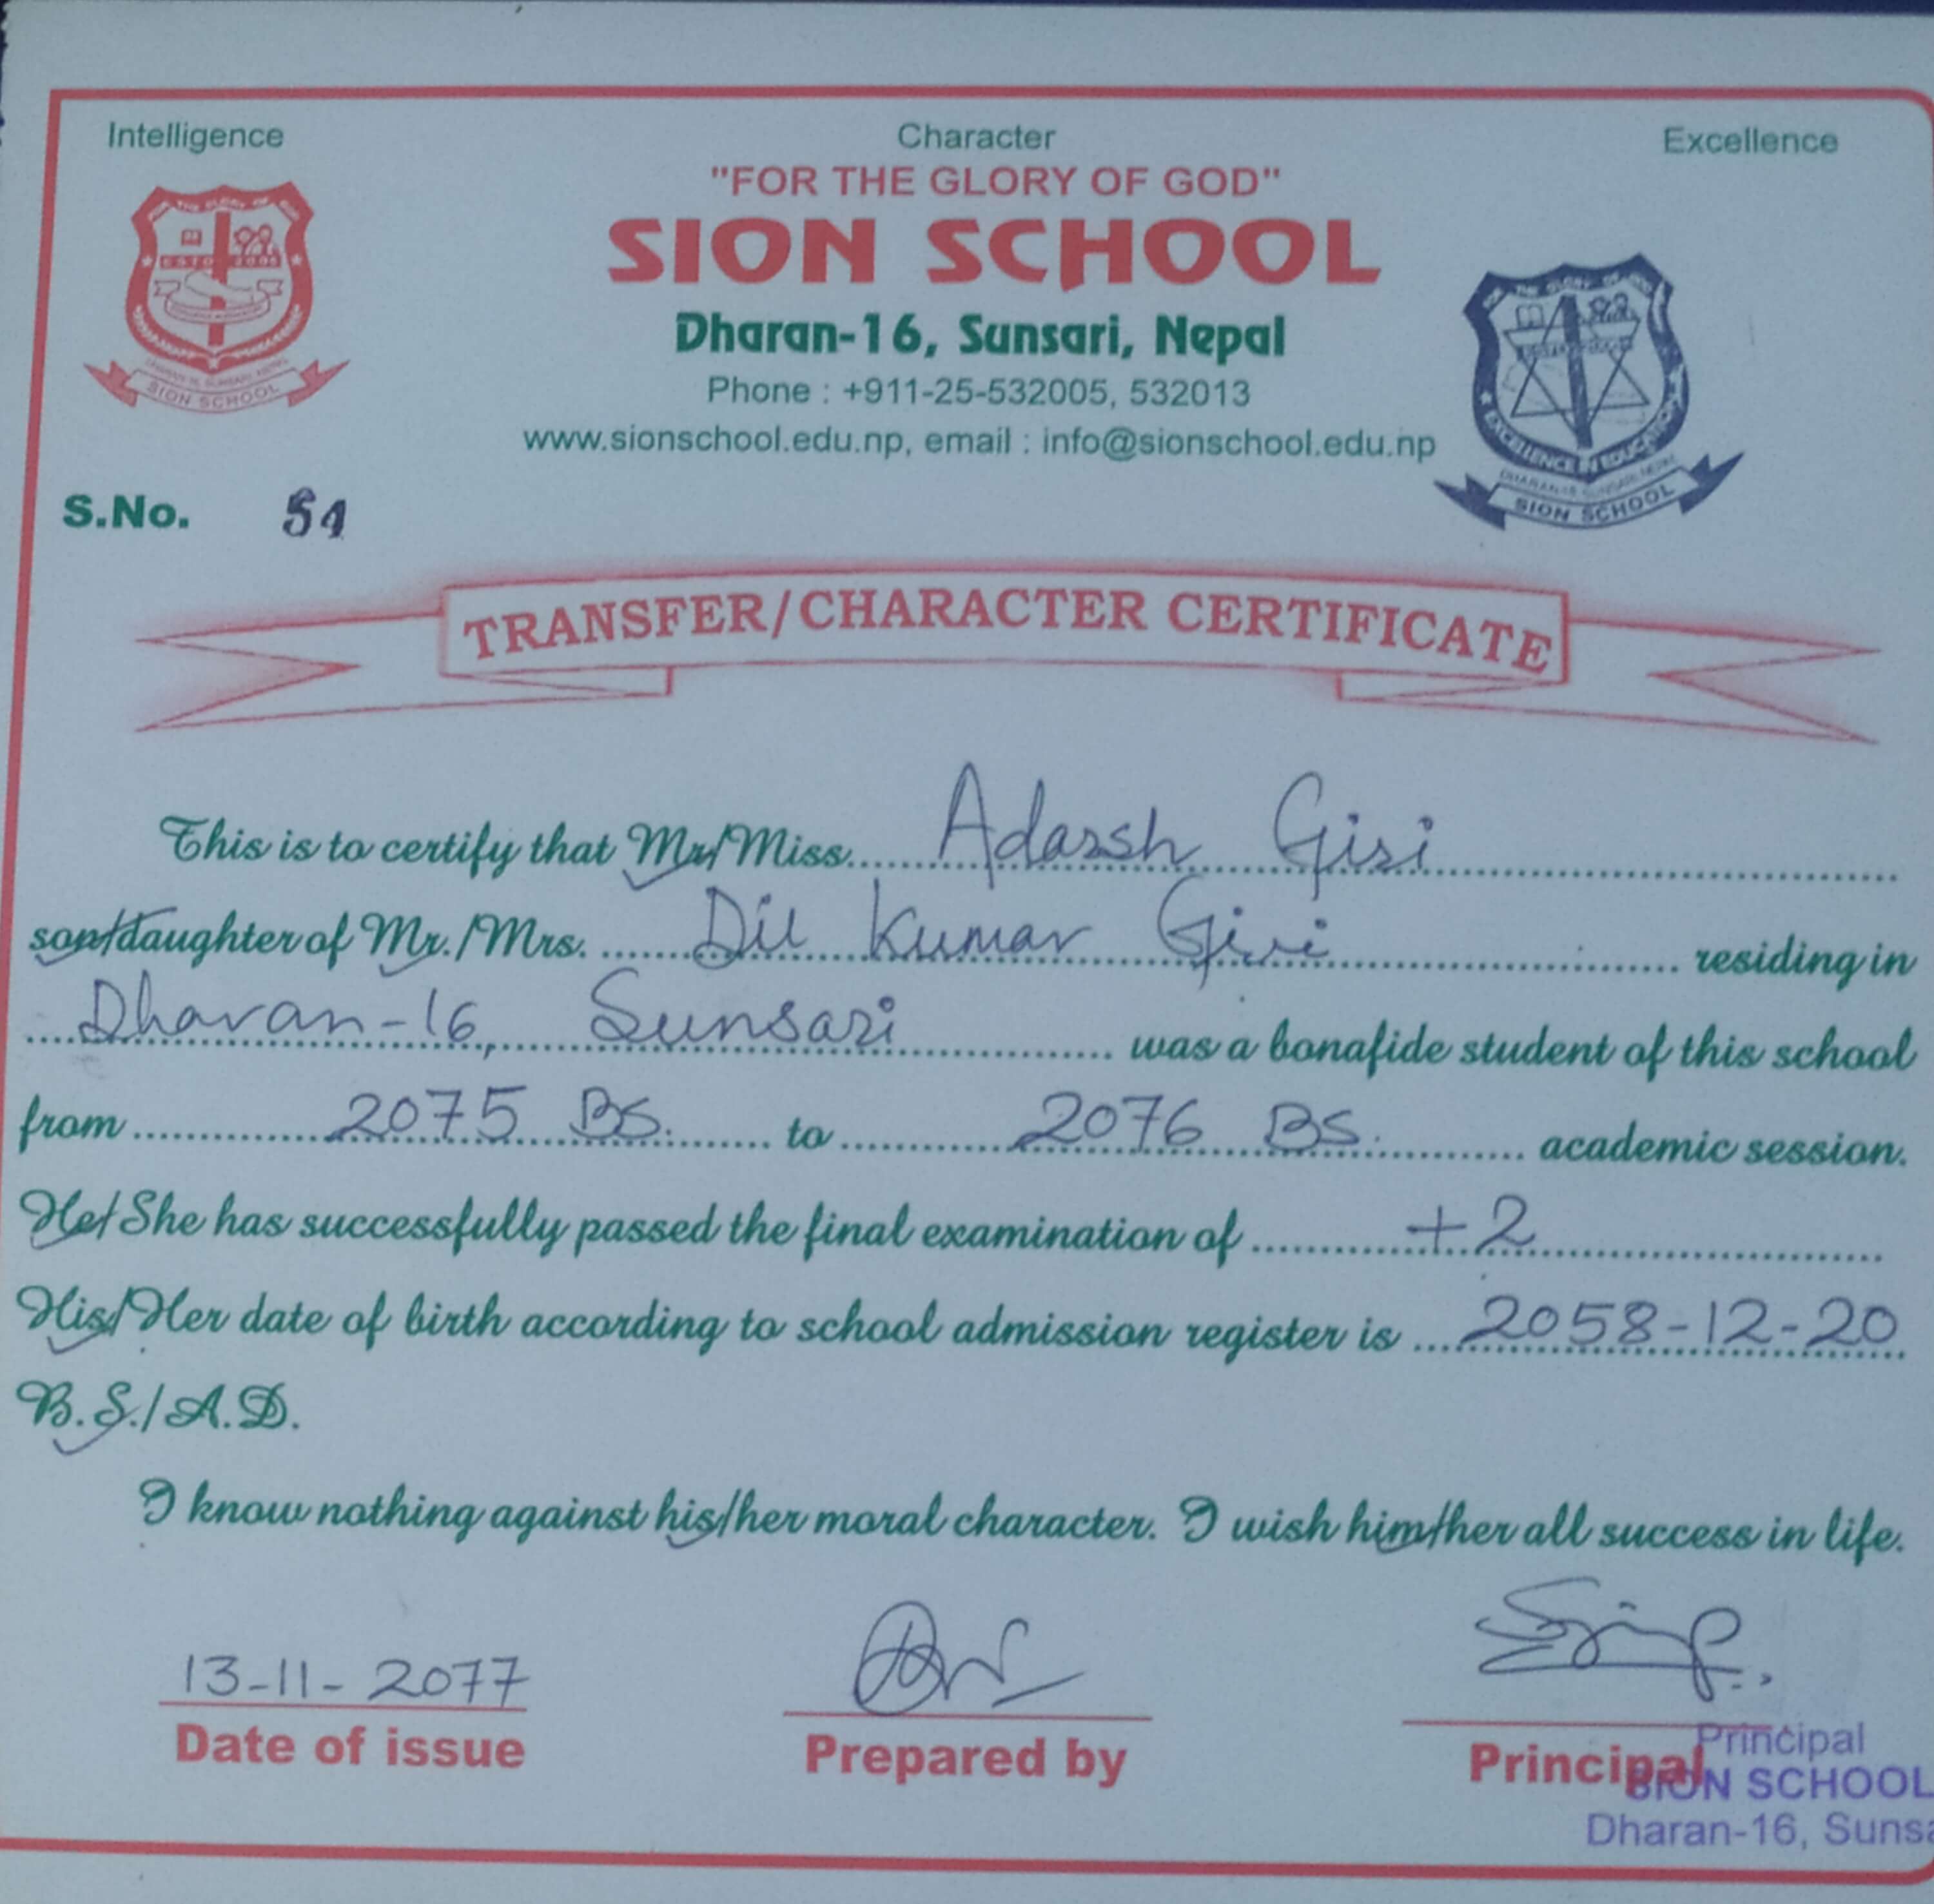 Intelligence Character Excellence
"FOR THE GLORY OF GOD"
SION SCHOOL
Dharan-16, Sunsari, Nepal
Phone : +911-25-532005, 532013
www.sionschool.edu.np, email : info@sionschool.edu.np
FOR THE GLORY OF GOD
ESTD 2005
SION SCHOOL
FOR THE GLORY OF GOD
EXCELLENCE IN EDUCATION
DHARAN-16 SUNSARI, NEPAL
SION SCHOOL
S.No. 51
TRANSFER/CHARACTER CERTIFICATE
This is to certify that Mr/Miss Adarsh Giri
son/daughter of Mr./Mrs. Dil Kumar Giri residing in
Dharan-16, Sunsari was a bonafide student of this school
from 2075 BS. to 2076 BS. academic session.
He/She has successfully passed the final examination of +2
His/Her date of birth according to school admission register is 2058-12-20
B.S./A.D.
I know nothing against his/her moral character. I wish him/her all success in life.
13-11-2077
Date of issue Prepared by Principal
Principal
SION SCHOOL
Dharan-16, Sunsa